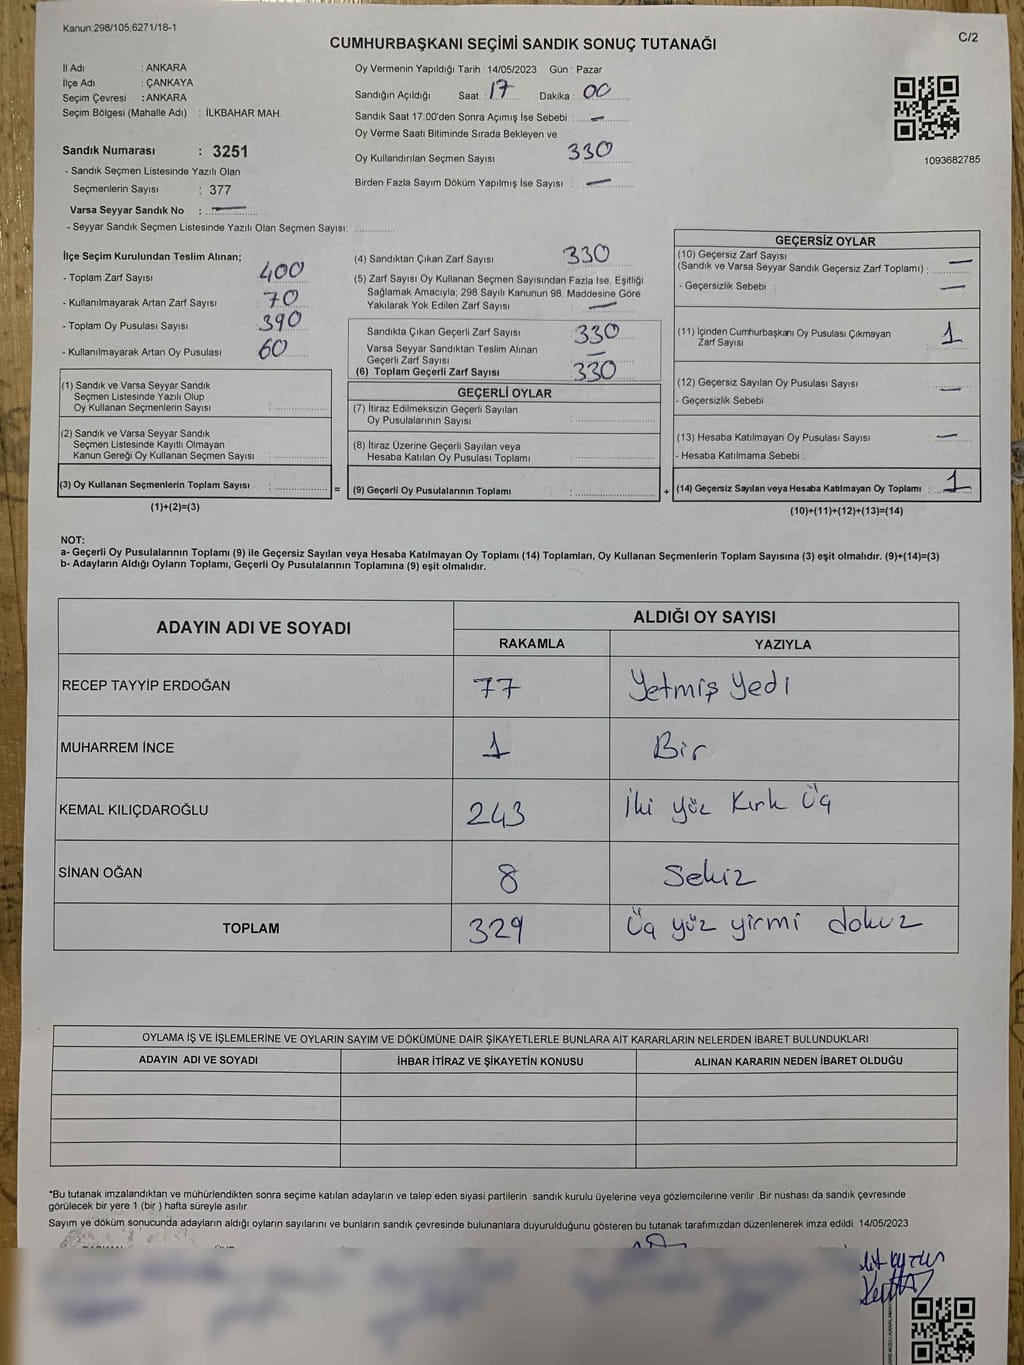 Kanun,298/105,6271/18-1
C/2
CUMHURBAŞKANI SEÇİMİ SANDIK SONUÇ TUTANAĞI
İl Adı : ANKARA
İlçe Adı : ÇANKAYA
Seçim Çevresi : ANKARA
Seçim Bölgesi (Mahalle Adı) : İLKBAHAR MAH.
Sandık Numarası : 3251
- Sandık Seçmen Listesinde Yazılı Olan
Seçmenlerin Sayısı : 377
Varsa Seyyar Sandık No : —
- Seyyar Sandık Seçmen Listesinde Yazılı Olan Seçmen Sayısı:
Oy Vermenin Yapıldığı Tarih : 14/05/2023 Gün : Pazar
Sandığın Açıldığı Saat : 17 Dakika : 00
Sandık Saat 17:00'den Sonra Açımış İse Sebebi : —
Oy Verme Saati Bitiminde Sırada Bekleyen ve
Oy Kullandırılan Seçmen Sayısı 330
Birden Fazla Sayım Döküm Yapılmış İse Sayısı : —
1093682785
İlçe Seçim Kurulundan Teslim Alınan;
- Toplam Zarf Sayısı : 400
- Kullanılmayarak Artan Zarf Sayısı : 70
- Toplam Oy Pusulası Sayısı : 390
- Kullanılmayarak Artan Oy Pusulası : 60
(1) Sandık ve Varsa Seyyar Sandık
Seçmen Listesinde Yazılı Olup
Oy Kullanan Seçmenlerin Sayısı :
(2) Sandık ve Varsa Seyyar Sandık
Seçmen Listesinde Kayıtlı Olmayan
Kanun Gereği Oy Kullanan Seçmen Sayısı :
(3) Oy Kullanan Seçmenlerin Toplam Sayısı : =
(1)+(2)=(3)
(4) Sandıktan Çıkan Zarf Sayısı : 330
(5) Zarf Sayısı Oy Kullanan Seçmen Sayısından Fazla İse, Eşitliği
Sağlamak Amacıyla; 298 Sayılı Kanunun 98. Maddesine Göre
Yakılarak Yok Edilen Zarf Sayısı : —
Sandıkta Çıkan Geçerli Zarf Sayısı : 330
Varsa Seyyar Sandıktan Teslim Alınan
Geçerli Zarf Sayısı : —
(6) Toplam Geçerli Zarf Sayısı : 330
GEÇERLİ OYLAR
(7) İtiraz Edilmeksizin Geçerli Sayılan
Oy Pusulalarının Sayısı :
(8) İtiraz Üzerine Geçerli Sayılan veya
Hesaba Katılan Oy Pusulası Toplamı :
(9) Geçerli Oy Pusulalarının Toplamı : +
GEÇERSİZ OYLAR
(10) Geçersiz Zarf Sayısı
(Sandık ve Varsa Seyyar Sandık Geçersiz Zarf Toplamı) : —
- Geçersizlik Sebebi : —
(11) İçinden Cumhurbaşkanı Oy Pusulası Çıkmayan
Zarf Sayısı : 1
(12) Geçersiz Sayılan Oy Pusulası Sayısı : —
- Geçersizlik Sebebi :
(13) Hesaba Katılmayan Oy Pusulası Sayısı : —
- Hesaba Katılmama Sebebi :
(14) Geçersiz Sayılan veya Hesaba Katılmayan Oy Toplamı : 1
(10)+(11)+(12)+(13)=(14)
NOT:
a- Geçerli Oy Pusulalarının Toplamı (9) ile Geçersiz Sayılan veya Hesaba Katılmayan Oy Toplamı (14) Toplamları, Oy Kullanan Seçmenlerin Toplam Sayısına (3) eşit olmalıdır. (9)+(14)=(3)
b- Adayların Aldığı Oyların Toplamı, Geçerli Oy Pusulalarının Toplamına (9) eşit olmalıdır.
ADAYIN ADI VE SOYADI
ALDIĞI OY SAYISI
RAKAMLA YAZIYLA
RECEP TAYYİP ERDOĞAN 77 Yetmiş Yedi
MUHARREM İNCE 1 Bir
KEMAL KILIÇDAROĞLU 243 İki yüz Kırk Üç
SİNAN OĞAN 8 Sekiz
TOPLAM 329 Üç yüz yirmi dokuz
OYLAMA İŞ VE İŞLEMLERİNE VE OYLARIN SAYIM VE DÖKÜMÜNE DAİR ŞİKAYETLERLE BUNLARA AİT KARARLARIN NELERDEN İBARET BULUNDUKLARI
ADAYIN ADI VE SOYADI İHBAR İTİRAZ VE ŞİKAYETİN KONUSU ALINAN KARARIN NEDEN İBARET OLDUĞU
*Bu tutanak imzalandıktan ve mühürlendikten sonra seçime katılan adayların ve talep eden siyasi partilerin sandık kurulu üyelerine veya gözlemcilerine verilir .Bir nüshası da sandık çevresinde
görülecek bir yere 1 (bir ) hafta süreyle asılır.
Sayım ve döküm sonucunda adayların aldığı oyların sayılarını ve bunların sandık çevresinde bulunanlara duyurulduğunu gösteren bu tutanak tarafımızdan düzenlenerek imza edildi. 14/05/2023